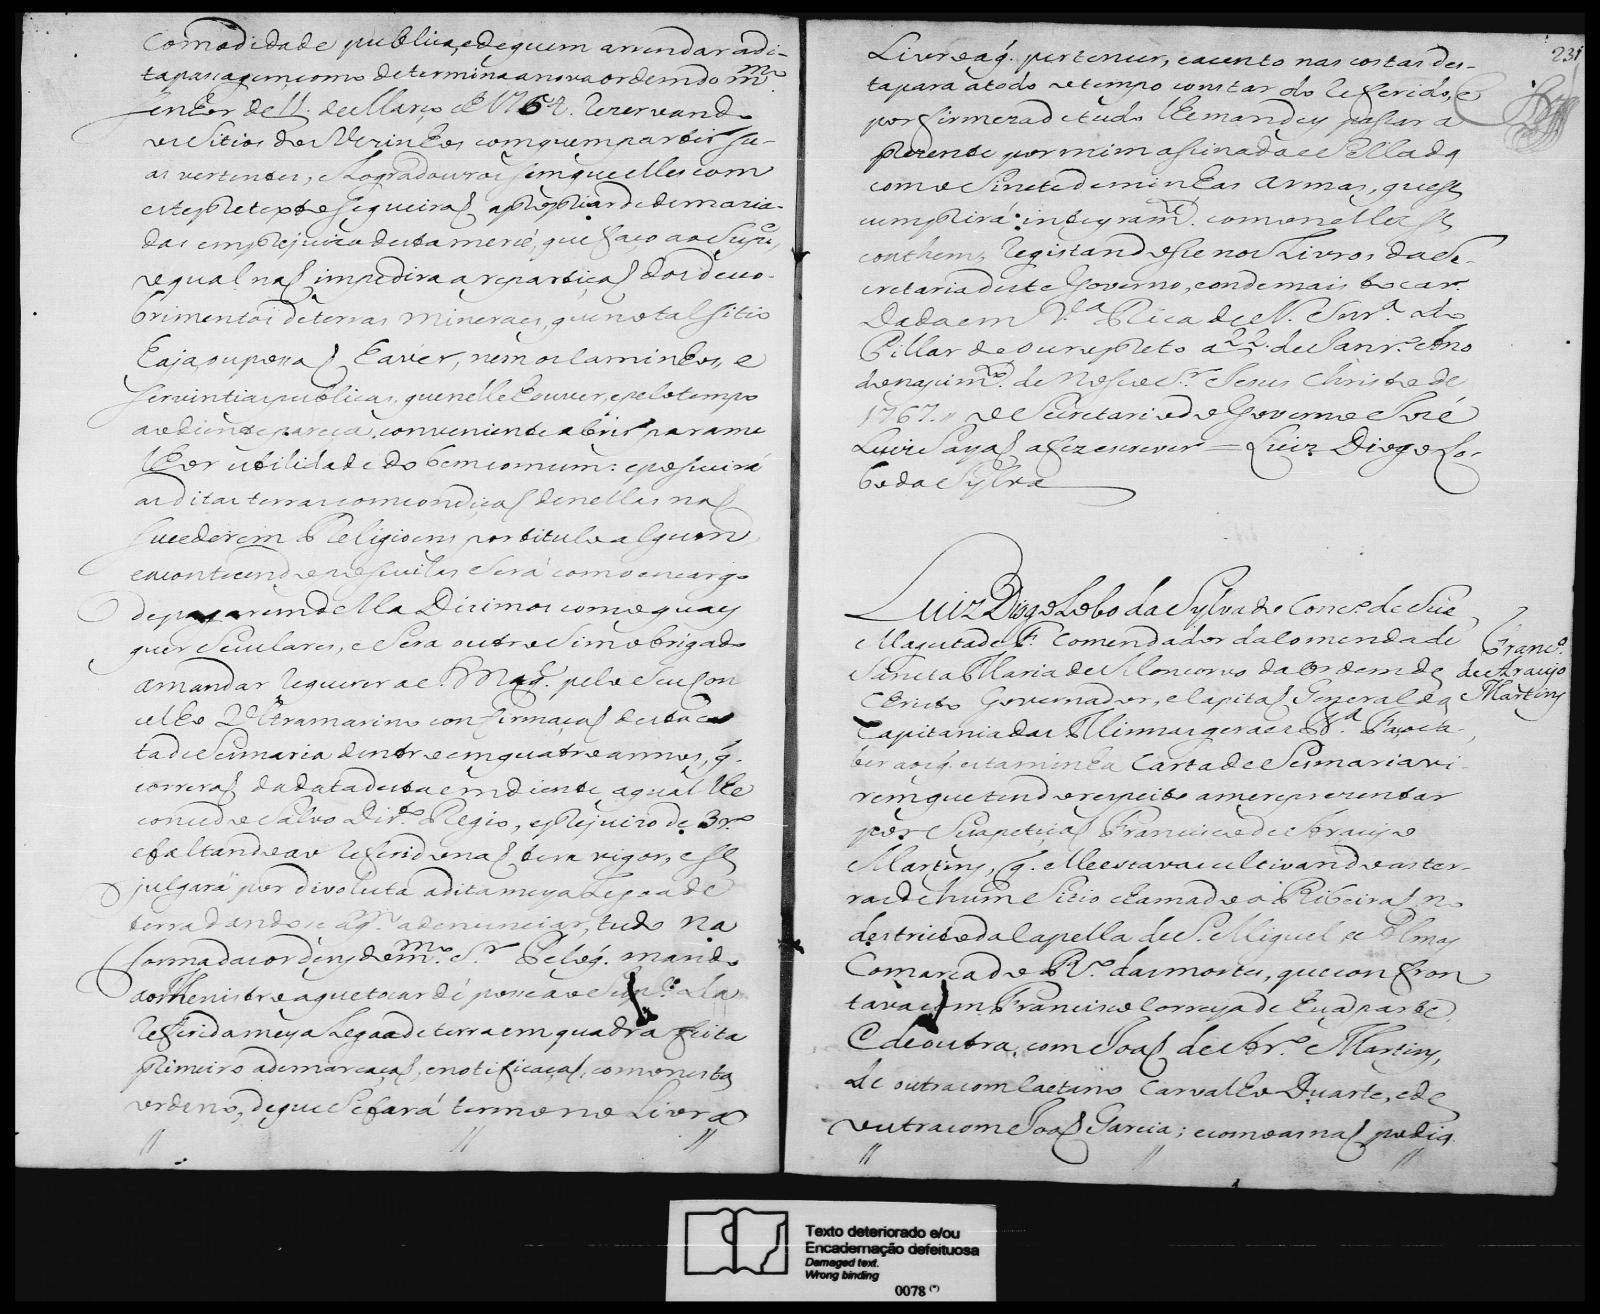 Comodidade publica, e de quem arrendar a di-
ta passagem como determina a nova ordem do m.mo
Senhor de 11. de Março de 1754. Rezervando
os Sitios dos Vezinhos com quem partir su-
as vertentes, e Logradouros sem que elles com
este pretexto se queiraõ apropriar de demazia-
das em prejuizo desta mercê, que faço ao Supp.e,
o qual naõ impedira a repartiçaõ dos desco-
brimentos de terras mineraes, que no tal sitio
haja ou possaõ haver, nem os caminhos, e
serventias publicas, que nelle houver, e pelo tempo
adiente pareça conveniente abrir para me
lhor utilidade do bem comum: e possuirá
as ditas terras com condiçaõ de nellas naõ
sucederem Religioens por titulo algum
e acontecendo possuilas será com o encargo
de pagarem della Dizimos como quaes
quer Seculares, e Sera outro Sim obrigado
a mandar requerer a S. Mag.e pelo Seu Con
celho Ultramarino confirmaçaõ desta car
ta de Sesmaria dentro em quatro annos, q.
correraõ da data desta em diente, a qual lhe
concedo Salvo Dir.to Regio, e prejuizo de 3.ro
e faltando ao referido naõ tera vigor, e se
julgará por divoluta a dita meya Legoa de
terra dando-se a q.m a denunciar, tudo na
forma das ordens do m.mo S.r Pelo q. mando
ao Menistro a que tocar dê posse ao Sup.e da
referida meya Legoa de terra em quadra feita
primeiro a demarcaçaõ, e notificaçaõ, como nesta
ordeno, de que Se fará termo no Livro
Livro a q. pertencer, e acento nas costas des-
ta para a todo o tempo constar do referido, e
por firmeza de tudo lhe mandey passar a
prezente por mim assinada e Sellada
com o Sinete de minhas Armas, que se
cumprirá integram.te como nella se
conthem, registandosse nos Livros da Se-
cretaria deste Governo, e onde mais tocar.
Dada em V.a Rica de N. Snr.a do
Pillar do Ouro preto a 22. de Janr.o Ano
do nacim.to de Nosso S.r Jesus Christo de
1767. // o Secretario do Governo Jozé
Luiz Sayaõ a fez escrever = Luiz Diogo Lo-
bo da Sylva
231
Luiz Diogo Lobo da Sylva do Conc.o de Sua
Magestade F. Comendador da Comenda de
Sancta Maria de Moncorvo da Ordem de
Christo Governador, e Capitaõ General da
Capitania das Minnas geraes V.a Faço sa-
ber aos q. esta minha Carta de Sesmaria vi-
rem que tendo respeito a me reprezentar
por Sua petiçaõ Francisco de Araujo
Martins, q. elle estava cultivando as ter-
ras de hum Sitio chamado o Ribeiraõ, no
destricto da Capella de S. Miguel e Almas
Comarca do R.o das mortes, que confron
tava com Francisco Correya de hua parte
e de outra, com Joaõ de Ar.o Martins,
de outra com Caetano Carvalho Duarte, e de
outra com Joaõ Garcia; e como as naõ podia
Franc.o
de Araujo
Martins
Texto deteriorado e/ou
Encadernação defeituosa
Damaged text.
Wrong binding
0078 (*)